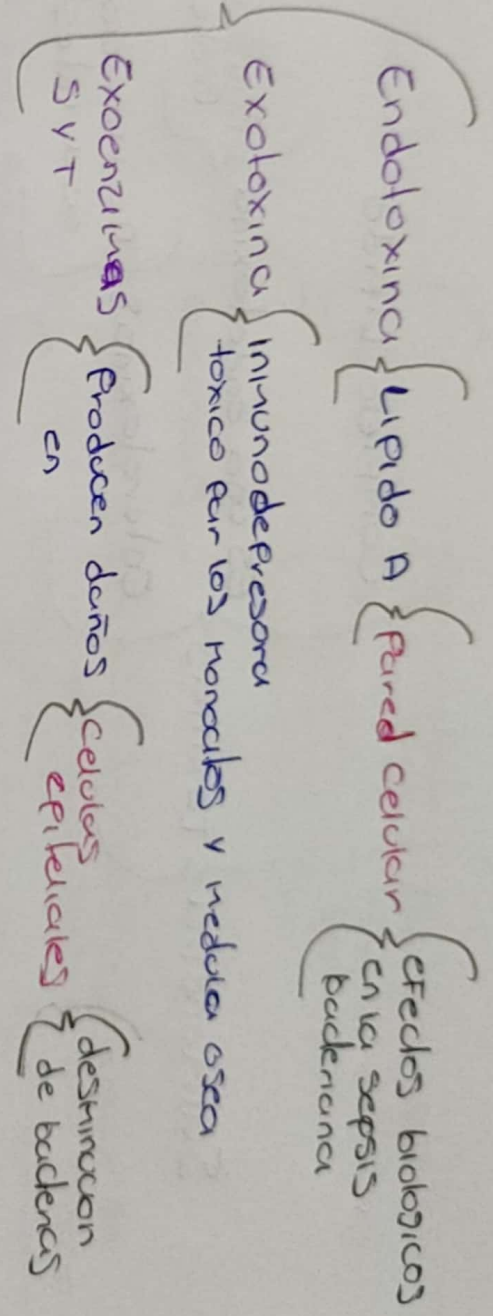 Endotoxina
Lipido A
Pared celular
efectos biologicos
en la sepsis
bacteriana
Exotoxina
inmunodepresora
toxico par los monocitos y medula osea
Exoenzimas
S y T
Producen daños
en
celulas
epiteliales
de bacterias